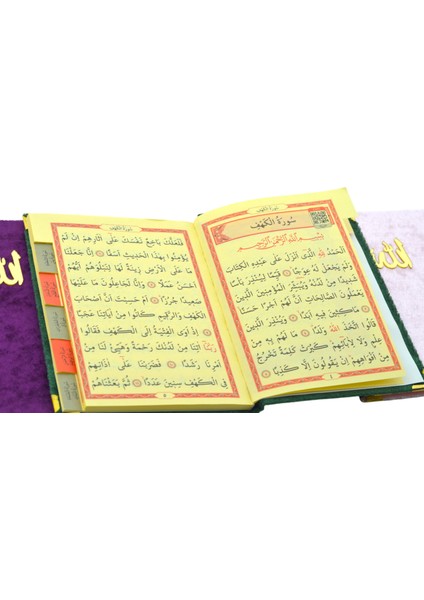 سُورَةُ الْكَهْفِ
سُورَةُ الْكَهْفِ
بِسْمِ اللّٰهِ الرَّحْمٰنِ الرَّحِيمِ
اَلْحَمْدُ لِلّٰهِ الَّذِي اَنْزَلَ عَلٰى عَبْدِهِ الْكِتَابَ
وَلَمْ يَجْعَلْ لَهُ عِوَجًا قَيِّمًا لِيُنْذِرَ بَأْسًا
شَدِيدًا مِنْ لَدُنْهُ وَيُبَشِّرَ الْمُؤْمِنِينَ الَّذِينَ
يَعْمَلُونَ الصَّالِحَاتِ اَنَّ لَهُمْ اَجْرًا حَسَنًا
مَاكِثِينَ فِيهِ اَبَدًا وَيُنْذِرَ الَّذِينَ
قَالُوا اتَّخَذَ اللّٰهُ وَلَدًا مَا لَهُمْ بِهِ مِنْ
عِلْمٍ وَلَا لِاٰبَائِهِمْ كَبُرَتْ كَلِمَةً تَخْرُجُ
مِنْ اَفْوَاهِهِمْ اِنْ يَقُولُونَ اِلَّا كَذِبًا
سُورَةُ الْكَهْفِ
فَلَعَلَّكَ بَاخِعٌ نَفْسَكَ عَلٰى اٰثَارِهِمْ اِنْ لَمْ
يُؤْمِنُوا بِهٰذَا الْحَدِيثِ اَسَفًا اِنَّا جَعَلْنَا
مَا عَلَى الْاَرْضِ زِينَةً لَهَا لِنَبْلُوَهُمْ اَيُّهُمْ
اَحْسَنُ عَمَلًا وَاِنَّا لَجَاعِلُونَ مَا عَلَيْهَا
صَعِيدًا جُرُزًا اَمْ حَسِبْتَ اَنَّ اَصْحَابَ
الْكَهْفِ وَالرَّقِيمِ كَانُوا مِنْ اٰيَاتِنَا عَجَبًا
اِذْ اَوَى الْفِتْيَةُ اِلَى الْكَهْفِ فَقَالُوا
رَبَّنَا اٰتِنَا مِنْ لَدُنْكَ رَحْمَةً وَهَيِّئْ لَنَا مِنْ
اَمْرِنَا رَشَدًا فَضَرَبْنَا عَلٰى اٰذَانِهِمْ
فِي الْكَهْفِ سِنِينَ عَدَدًا ثُمَّ بَعَثْنَاهُمْ
الله
الله